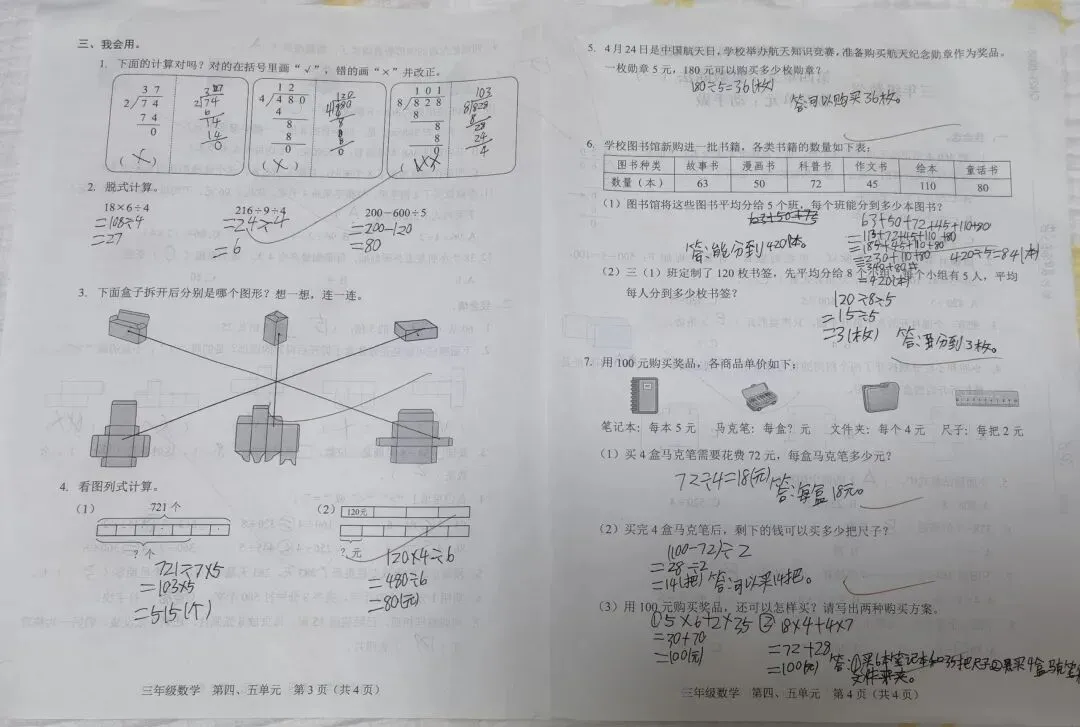 三、我会用。
1. 下面的计算对吗?对的在括号里画“√”,错的画“×”并改正。
37
2 74
74
0
(×)
37
2 74
6
14
14
0
12
4 480
4
8
8
0
(×)
120
8
8
0
101
8 828
8
8
8
0
103
8 828
8
28
24
4
2. 脱式计算。
18×6÷4
=108÷4
=27
216÷9÷4
=24÷4
=6
200-600÷5
=200-120
=80
3. 下面盒子拆开后分别是哪个图形?想一想,连一连。
4. 看图列式计算。
(1)
721个
?个
721÷7×5
=103×5
=515(个)
(2)
120元
?元
120×4÷6
=480÷6
=80(元)
三年级数学 第四、五单元 第3页(共4页)
5. 4月24日是中国航天日,学校举办航天知识竞赛,准备购买航天纪念勋章作为奖品。
一枚勋章5元,180元可以购买多少枚勋章?
180÷5=36(枚)
答:可以购买36枚。
6. 学校图书馆新购进一批书籍,各类书籍的数量如下表:
图书种类 故事书 漫画书 科普书 作文书 绘本 童话书
数量(本) 63 50 72 45 110 80
(1)图书馆将这些图书平均分给5个班,每个班能分到多少本图书?
63+50+72+45+110+80
=113+72+45+110+80
=185+45+110+80
=230+110+80
=340+80
=420(本)
420÷5=84(本)
答:能分到420本。
(2)三(1)班定制了120枚书签,先平均分给8个小组,每个小组有5人,平均
每人分到多少枚书签?
120÷8÷5
=15÷5
=3(枚)
答:要分到3枚。
7. 用100元购买奖品,各商品单价如下:
笔记本:每本5元 马克笔:每盒?元 文件夹:每个4元 尺子:每把2元
(1)买4盒马克笔需要花费72元,每盒马克笔多少元?
72÷4=18(元)
答:每盒18元。
(2)买完4盒马克笔后,剩下的钱可以买多少把尺子?
(100-72)÷2
=28÷2
=14(把)
答:可以买14把。
(3)用100元购买奖品,还可以怎样买?请写出两种购买方案。
①5×6+2×35
=30+70
=100(元)
②18×4+4×7
=72+28
=100(元)
答:①买6本笔记本和35把尺子
三年级数学 第四、五单元 第4页(共4页)